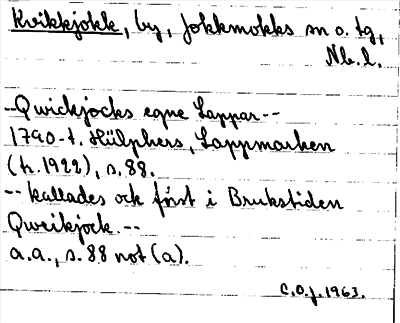 Kvikkjokk, by, Jokkmokks sn o. tg,
Nb. l.
-- Qwickjocks egne Lappar --
1790-t. Hülphers, Lappmarken
(tr. 1922), s. 88.
-- kallades ock först i Brukstiden
Qweikjock. --
a.a., s. 88 not (a).
C.O.J. 1963.